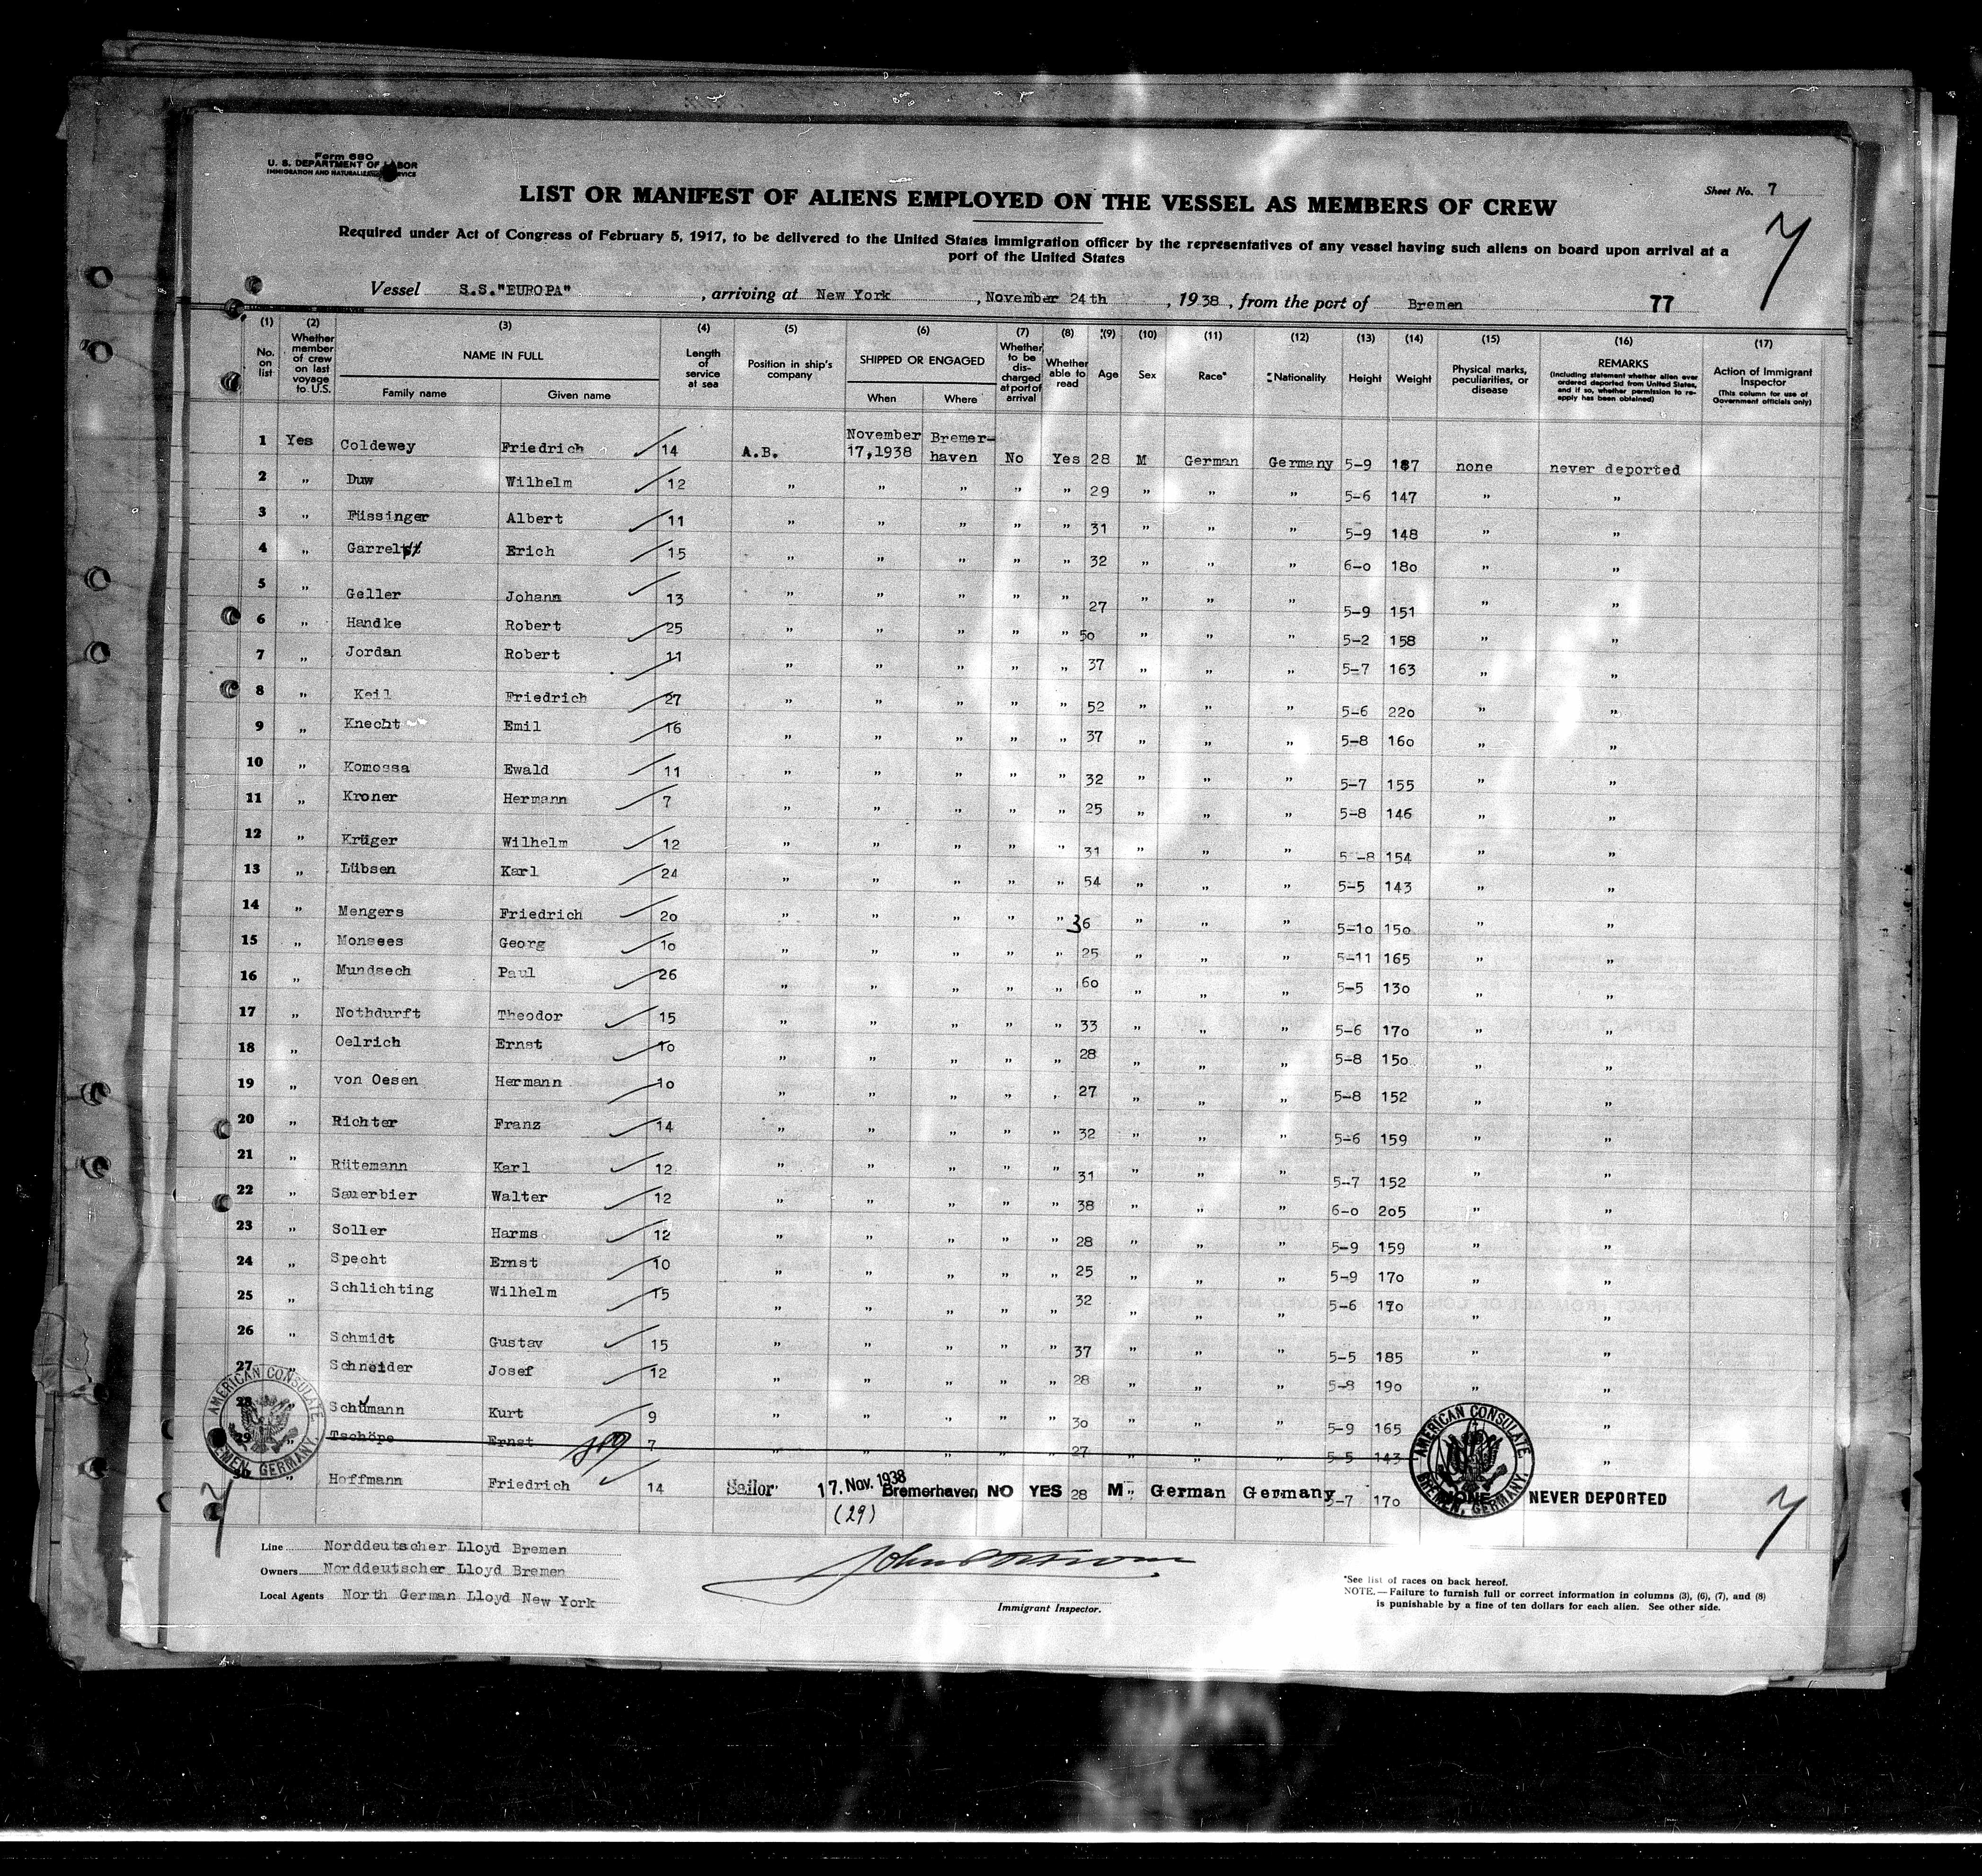 Form 680
U. S. DEPARTMENT OF LABOR
IMMIGRATION AND NATURALIZATION SERVICE
Sheet No. 7
LIST OR MANIFEST OF ALIENS EMPLOYED ON THE VESSEL AS MEMBERS OF CREW
7
Required under Act of Congress of February 5, 1917, to be delivered to the United States Immigration officer by the representatives of any vessel having such aliens on board upon arrival at a
port of the United States
Vessel S.S."EUROPA" , arriving at New York , November 24th , 1938, from the port of Bremen 77
(1) (2) (3) (4) (5) (6) (7) (8) (9) (10) (11) (12) (13) (14) (15) (16) (17)
No. on list Whether member of crew on last voyage to U.S. NAME IN FULL Family name Given name Length of service at sea Position in ship's company SHIPPED OR ENGAGED When Where Whether to be discharged at port of arrival Whether able to read Age Sex Race* Nationality Height Weight Physical marks, peculiarities, or disease REMARKS (Including statement whether alien ever ordered deported from United States, and if so, whether permission to re-apply has been obtained) Action of Immigrant Inspector (This column for use of Government officials only)
1 Yes Coldewey Friedrich 14 A.B. November 17,1938 Bremer-haven No Yes 28 M German Germany 5-9 187 none never deported
2 " Duw Wilhelm 12 " " " " " 29 " " " 5-6 147 " "
3 " Füssinger Albert 11 " " " " " 31 " " " 5-9 148 " "
4 " Garrelts Erich 15 " " " " " 32 " " " 6-0 180 " "
5 " Geller Johann 13 " " " " " 27 " " " 5-9 151 " "
6 " Handke Robert 25 " " " " " 50 " " " 5-2 158 " "
7 " Jordan Robert 11 " " " " " 37 " " " 5-7 163 " "
8 " Keil Friedrich 27 " " " " " 52 " " " 5-6 220 " "
9 " Knecht Emil 16 " " " " " 37 " " " 5-8 160 " "
10 " Komossa Ewald 11 " " " " " 32 " " " 5-7 155 " "
11 " Kroner Hermann 7 " " " " " 25 " " " 5-8 146 " "
12 " Krüger Wilhelm 12 " " " " " 31 " " " 5-8 154 " "
13 " Lübsen Karl 24 " " " " " 54 " " " 5-5 143 " "
14 " Mengers Friedrich 20 " " " " " 36 " " " 5-10 150 " "
15 " Monsees Georg 10 " " " " " 25 " " " 5-11 165 " "
16 " Mundsech Paul 26 " " " " " 60 " " " 5-5 130 " "
17 " Nothdurft Theodor 15 " " " " " 33 " " " 5-6 170 " "
18 " Oelrich Ernst 10 " " " " " 28 " " " 5-8 150 " "
19 " von Oesen Hermann 10 " " " " " 27 " " " 5-8 152 " "
20 " Richter Franz 14 " " " " " 32 " " " 5-6 159 " "
21 " Rütemann Karl 12 " " " " " 31 " " " 5-7 152 " "
22 " Sauerbier Walter 12 " " " " " 38 " " " 6-0 205 " "
23 " Soller Harms 12 " " " " " 28 " " " 5-9 159 " "
24 " Specht Ernst 10 " " " " " 25 " " " 5-9 170 " "
25 " Schlichting Wilhelm 15 " " " " " 32 " " " 5-6 170 " "
26 " Schmidt Gustav 15 " " " " " 37 " " " 5-5 185 " "
27 " Schneider Josef 12 " " " " " 28 " " " 5-8 190 " "
28 Schümann Kurt 9 " " " " " 30 " " " 5-9 165 "
29 " Tschöpe Ernst 7 " " " " " 27 " " " 5-5 143
" Hoffmann Friedrich 14 Sailor 17. Nov. 1938 Bremerhaven NO YES 28 M " German Germany 5-7 170 NONE NEVER DEPORTED
(29)
AMERICAN CONSULATE BREMEN, GERMANY.
AMERICAN CONSULATE BREMEN, GERMANY.
7
Line Norddeutscher Lloyd Bremen
Owners Norddeutscher Lloyd Bremen
Local Agents North German Lloyd New York
Immigrant Inspector.
*See list of races on back hereof.
NOTE.—Failure to furnish full or correct information in columns (3), (6), (7), and (8)
is punishable by a fine of ten dollars for each alien. See other side.